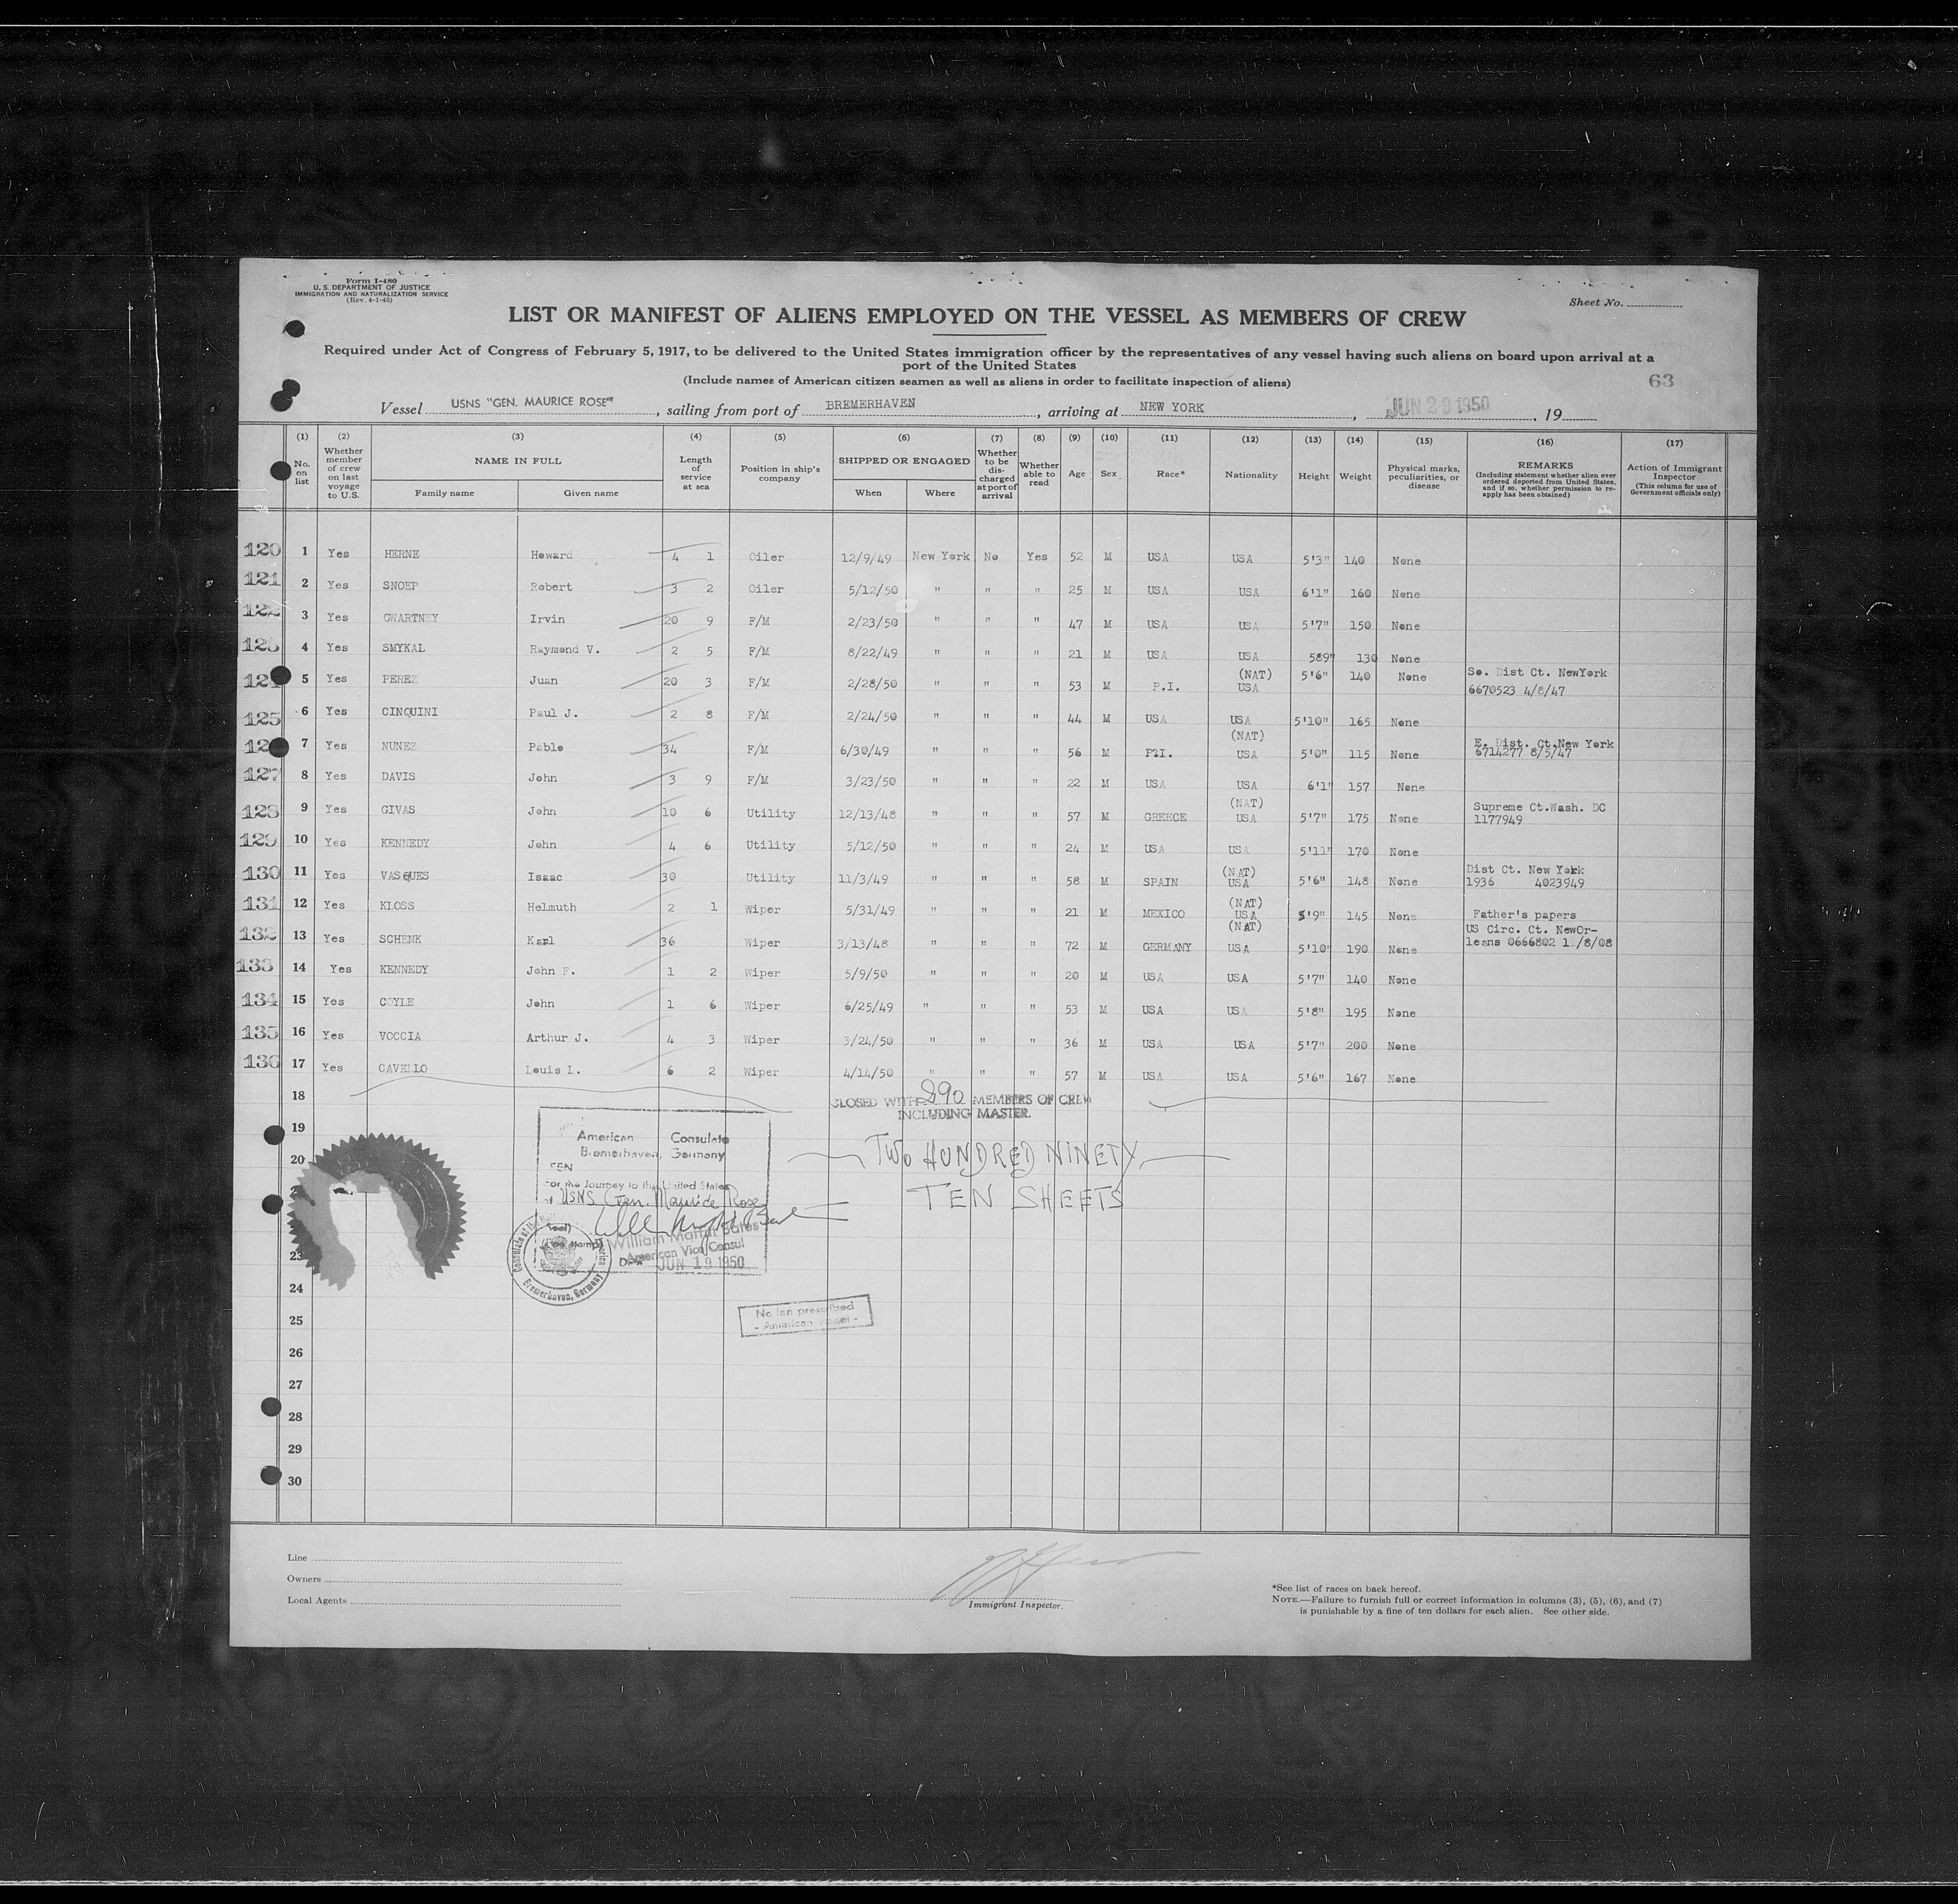 Form I-480
U. S. DEPARTMENT OF JUSTICE
IMMIGRATION AND NATURALIZATION SERVICE
(Rev. 4-1-45)
Sheet No.
LIST OR MANIFEST OF ALIENS EMPLOYED ON THE VESSEL AS MEMBERS OF CREW
Required under Act of Congress of February 5, 1917, to be delivered to the United States immigration officer by the representatives of any vessel having such aliens on board upon arrival at a
port of the United States
(Include names of American citizen seamen as well as aliens in order to facilitate inspection of aliens)
63
Vessel USNS "GEN. MAURICE ROSE" , sailing from port of BREMERHAVEN , arriving at NEW YORK , JUN 29 1950 , 19
(1) (2) (3) (4) (5) (6) (7) (8) (9) (10) (11) (12) (13) (14) (15) (16) (17)
No. on list
Whether member of crew on last voyage to U.S.
NAME IN FULL
Family name
Given name
Length of service at sea
Position in ship's company
SHIPPED OR ENGAGED
When
Where
Whether to be discharged at port of arrival
Whether able to read
Age
Sex
Race*
Nationality
Height
Weight
Physical marks, peculiarities, or disease
REMARKS
(Including statement whether alien ever ordered deported from United States, and if so, whether permission to re-apply has been obtained)
Action of Immigrant Inspector
(This column for use of Government officials only)
120 1 Yes HERNE Howard 4 1 Oiler 12/9/49 New York No Yes 52 M USA USA 5'3" 140 None
121 2 Yes SNOEP Robert 3 2 Oiler 5/12/50 " " " 25 M USA USA 6'1" 160 None
122 3 Yes GWARTNEY Irvin 20 9 F/M 2/23/50 " " " 47 M USA USA 5'7" 150 None
123 4 Yes SMYKAL Raymond V. 2 5 F/M 8/22/49 " " " 21 M USA USA 589" 130 None
12 5 Yes PEREZ Juan 20 3 F/M 2/28/50 " " " 53 M P.I. (NAT) USA 5'6" 140 None So. Dist Ct. NewYork
6670523 4/8/47
125 6 Yes CINQUINI Paul J. 2 8 F/M 2/24/50 " " " 44 M USA USA 5'10" 165 None
12 7 Yes NUNEZ Pablo 34 F/M 6/30/49 " " " 56 M P.I. (NAT) USA 5'0" 115 None E. Dist. Ct.New York
6714277 8/5/47
127 8 Yes DAVIS John 3 9 F/M 3/23/50 " " " 22 M USA USA 6'1" 157 None
128 9 Yes GIVAS John 10 6 Utility 12/13/48 " " " 57 M GREECE (NAT) USA 5'7" 175 None Supreme Ct.Wash. DC
1177949
129 10 Yes KENNEDY John 4 6 Utility 5/12/50 " " " 24 M USA USA 5'11" 170 None
130 11 Yes VASQUES Isaac 30 Utility 11/3/49 " " " 58 M SPAIN (NAT) USA 5'6" 148 None Dist Ct. New York
1936 4023949
131 12 Yes KLOSS Helmuth 2 1 Wiper 5/31/49 " " " 21 M MEXICO (NAT) USA 5'9" 145 None Father's papers
132 13 Yes SCHENK Karl 36 Wiper 3/13/48 " " " 72 M GERMANY (NAT) USA 5'10" 190 None US Circ. Ct. NewOr-
leans 0666802 /8/08
133 14 Yes KENNEDY John F. 1 2 Wiper 5/9/50 " " " 20 M USA USA 5'7" 140 None
134 15 Yes COYLE John 1 6 Wiper 6/25/49 " " " 53 M USA USA 5'8" 195 None
135 16 Yes VOCCIA Arthur J. 4 3 Wiper 3/24/50 " " " 36 M USA USA 5'7" 200 None
136 17 Yes CAVELLO Louis I. 6 2 Wiper 4/14/50 " " " 57 M USA USA 5'6" 167 None
18
CLOSED WITH 290 MEMBERS OF CREW
INCLUDING MASTER
19
American Consulate
Bremerhaven, Germany
TWO HUNDRED NINETY
20
For the Journey to the United States
USNS Gen. Maurice Rose
TEN SHEETS
William Martin Bates
American Vice Consul
Date JUN 19 1950
Bremerhaven, Germany
23
24
No fee prescribed
- American Vessel -
25
26
27
28
29
30
Line
Owners
Local Agents
Immigrant Inspector.
*See list of races on back hereof.
NOTE.—Failure to furnish full or correct information in columns (3), (5), (6), and (7)
is punishable by a fine of ten dollars for each alien. See other side.